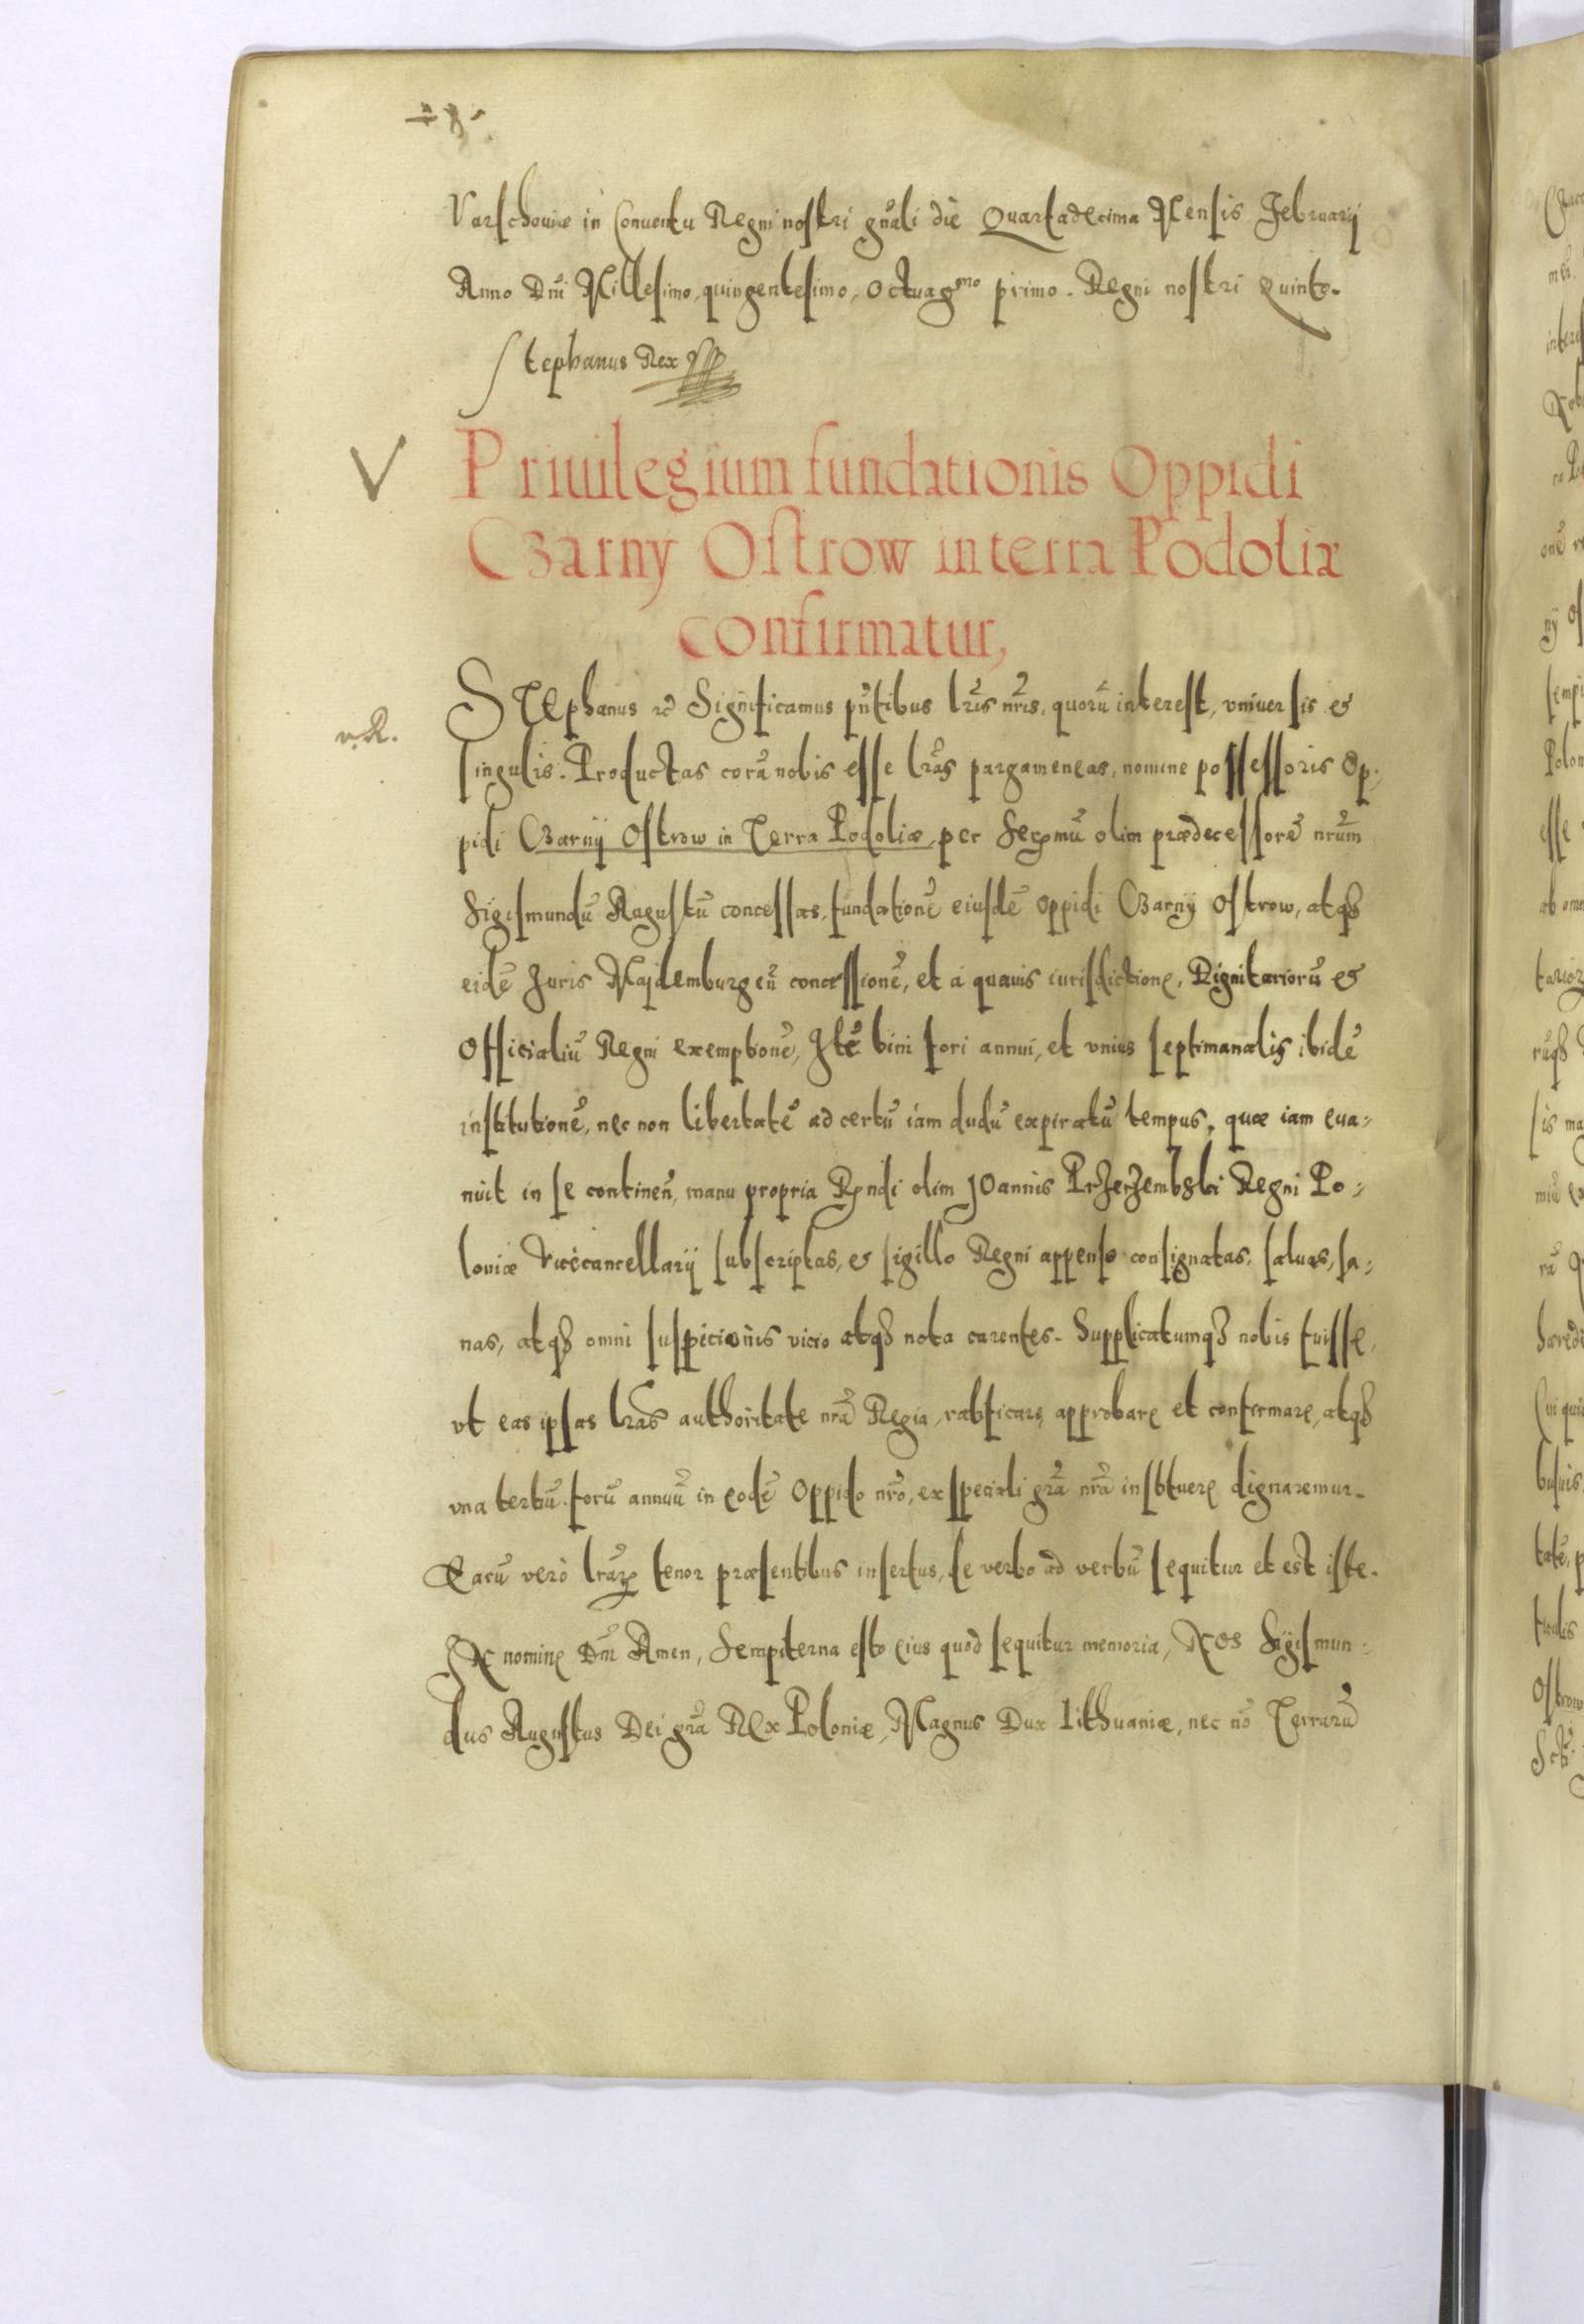 Varschouiæ in Conuentu Regni nostri gnãli die Quartadecima Mensis Februarij
Anno Dni Millesimo, quingentesimo, Octuagmo primo. Regni nostri Quinto.
Stephanus Rex
V Priuilegium fundationis Oppidi
Czarny Ostrow in terra Podoliæ
confirmatur,
Stephanus rc Significamus pntibus lris nris, quorũ interest, vniuersis &
v. R.
singulis. Productas corã nobis esse lras pargameneas, nomine possessoris Op,
pidi Czarny Ostrow in Terra Podoliæ, per Sermũ olim prædecessorẽ nrum
Sigismundũ Augustũ concessas, fundationẽ eiusdẽ Oppidi Czarny Ostrow, atq3
eidẽ Juris Majdemburgen concessionẽ, et à quauis iurisdictione, Dignitariorũ &
Officialiũ Regni exemptionẽ, Itẽ bini fori annui, et vnius septimanalis ibidẽ
institutionẽ, nec non libertatẽ ad certũ iam dudũ expiratũ tempus, quæ iam eua,
nuit in se continen, manu propria Rndi olim JOannis Przerzembski Regni Po,
loniæ Vicecancellarij subscriptas, & sigillo Regni appenso consignatas, saluas, sa,
nas, atq3 omni suspicionis vicio atq3 nota carentes. Supplicatumq3 nobis fuisse,
vt eas ipsas lras authoritate nrã Regia, ratificare, approbare et confirmare, atq3
vna tertiũ forũ annuũ in eodẽ Oppido nrõ, ex speciali grã nrã instituere dignaremur.
Earũ verò lrar tenor præsentibus insertus, de verbo ad verbũ sequitur et est iste.
IN nomine Dni Amen, Sempiterna esto eius quod sequitur memoria, Nos Sigismun,
dus Augustus Dei grã Rex Poloniæ, Magnus Dux Lithuaniæ, nec nõ Terrarũ